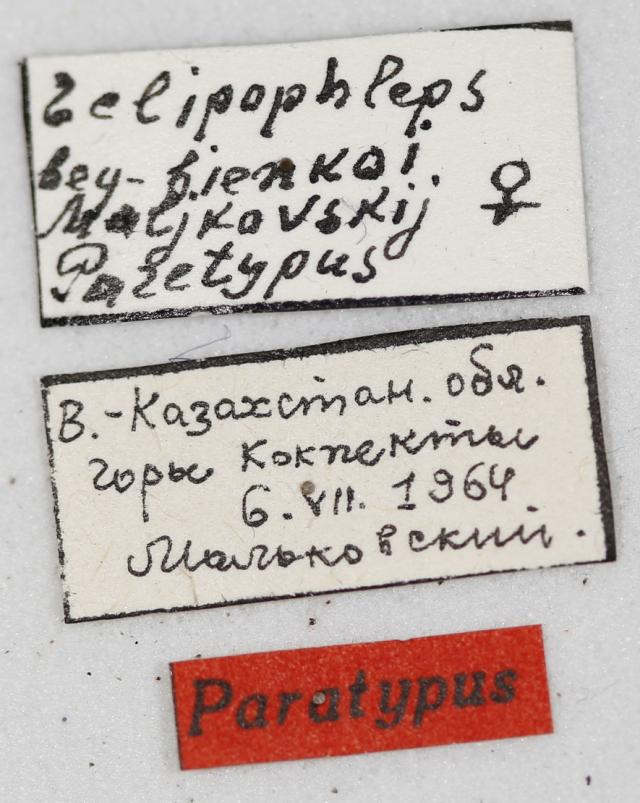 Zelipophleps
bey-bienkoi.
Maljkovskij ♀
Paratypus
В.-Казахстан. обл.
горы Кокпекты
6.VII. 1964
Мальковский.
Paratypus